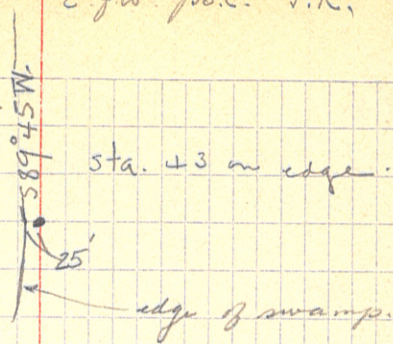 S89°45W.
sta. 43 on edge.
25'
edge of swamp.